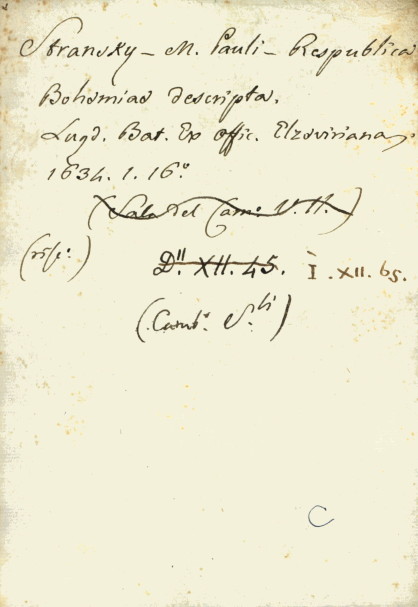 Stransky - M. Pauli - Respublica
Bohemiae descripta.
Lugd. Bat. Ex offic. Elzeviriana,
1634. 1. 16º
(Sala del Cam.º V. H.)
(risc.º)
D." XII. 45. I. XII. 65.
(Camb.º S.li)
C